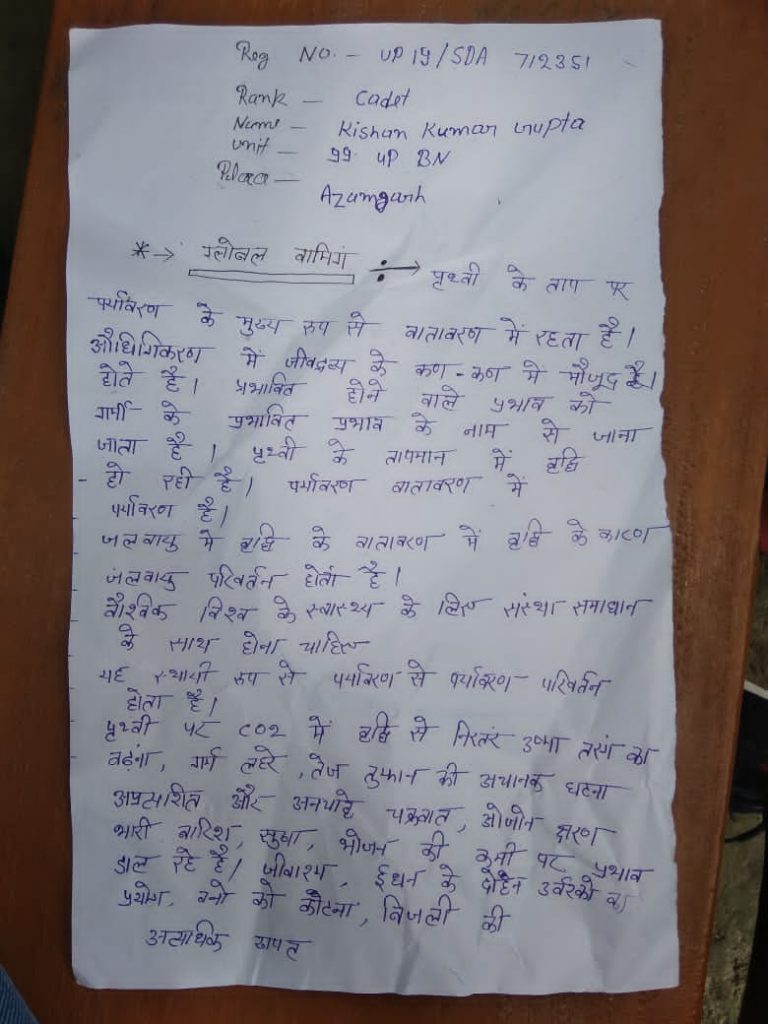 Reg No. - UP19/SDA 712351
Rank - Cadet
Name - Kishan Kumar Gupta
Unit - 99 UP BN
Place - Azamgarh
*→ ग्लोबल वामिगं ÷→ पृथ्वी के ताप पर
पर्यावरण के मुख्य रूप से वातावरण में रहता है।
औधोगिकरण में जीवद्रव्य के कण-कण में मौजूद है।
होते है। प्रभावित होने वाले प्रभाव को
गर्मी के प्रभावित प्रभाव के नाम से जाना
जाता है। पृथ्वी के तापमान में वृद्धि
हो रही है। पर्यावरण वातावरण में
पर्यावरण है।
जलवायु में वृद्धि के वातावरण में वृद्धि के कारण
जलवायु परिवर्तन होता है।
वैश्विक विश्व के स्वास्थ्य के लिए संस्था समाधान
के साथ होना चाहिए
यह स्थायी रूप से पर्यावरण से पर्यावरण परिवर्तन
होता है।
पृथ्वी पर CO2 में वृद्धि से निरतंर उष्मा तरंग का
बढ़ना, गर्म लहरे, तेज तुफान की अचानक घटना
अप्रत्याशित और अनचाहे चक्रवात, ओजोन क्षरण
भारी बारिश, सुखा, भोजन की कमी पर प्रभाव
डाल रहे है। जीवाश्म, ईधन के दोहन उर्वरको का
प्रयोग, वनो को काटना, बिजली की
अत्याधिक खपत